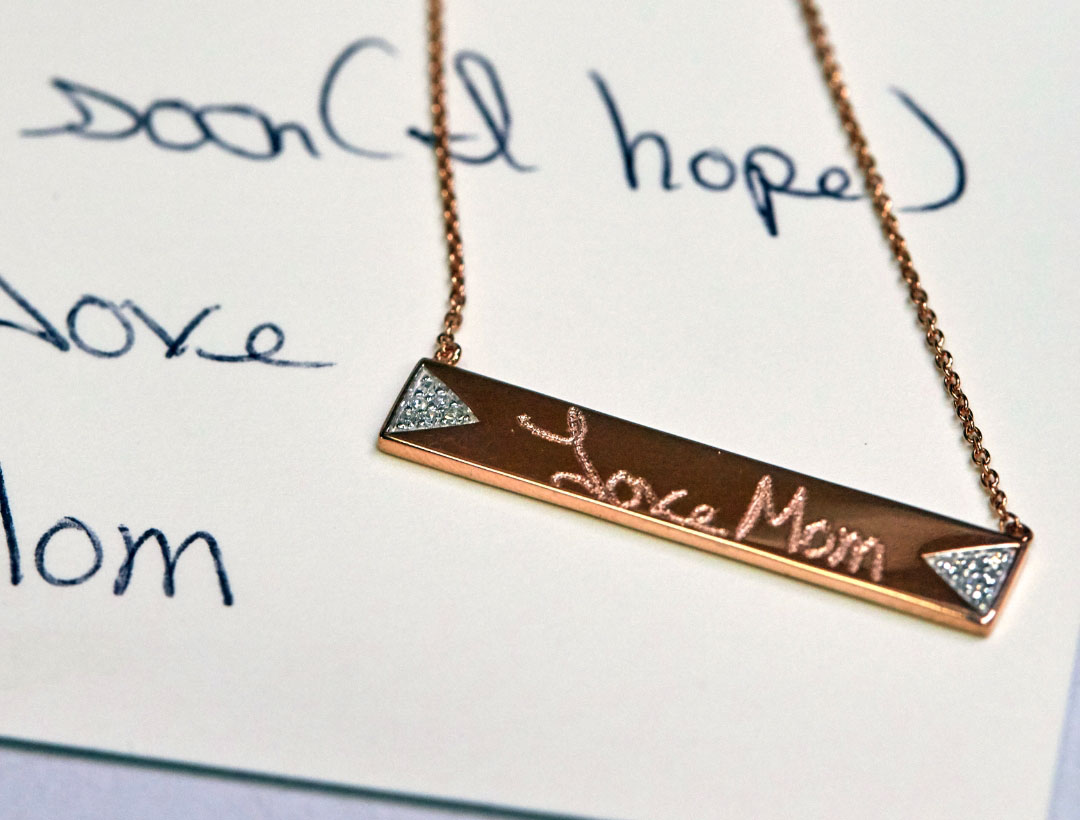 soon (I hope)
Love
Mom
Love Mom